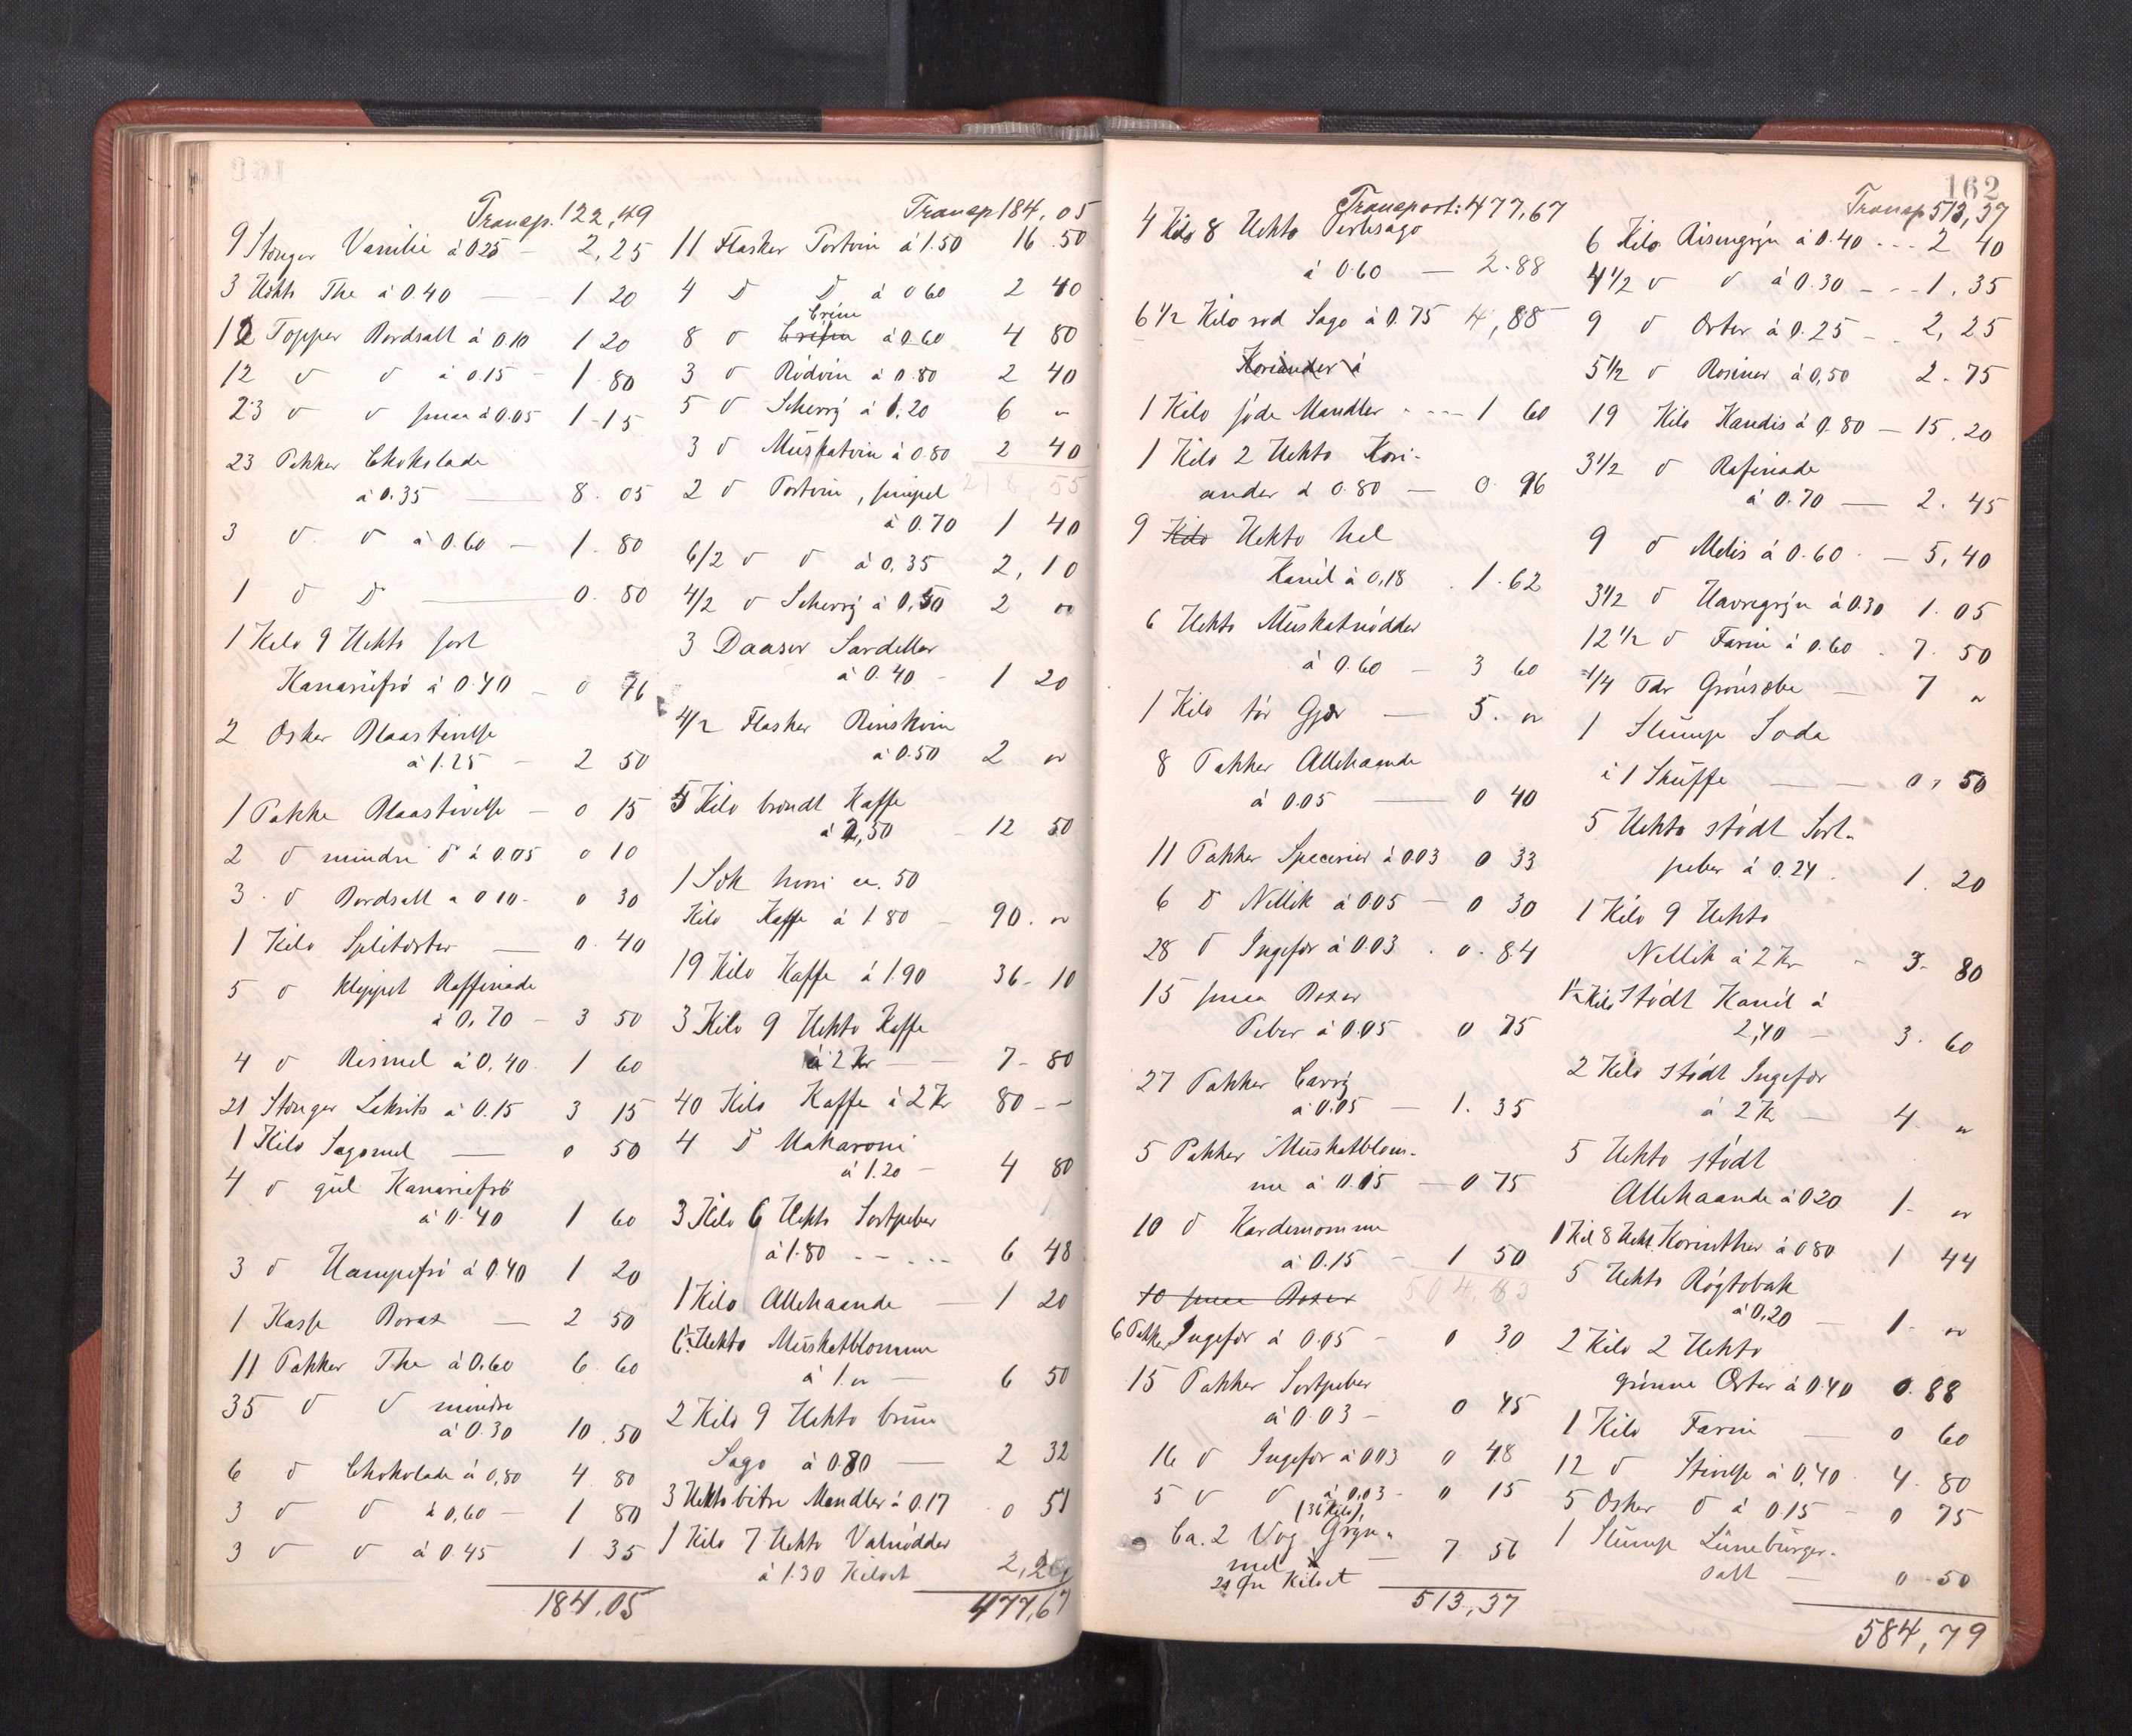 Transp. 122,49
9 Stænger Vanilie à 025 — 2,25
3 Hekto The à 0.40 — 1 20
12 Topper Bordsalt à 0.10 1 20
12 d d à 0.15 - 1.80
23 d d smaa à 0.05 1-15
23 Pakker Chokolade
à 0.35 — 8.05
3 d. d à 0.60 — 1.80
1 d d — 0.80
1 Kilo 9 Hekto sort
Kanariefrö à 0.40 - 0 76
2 Esker Blaastivelse
à 1.25 - 2 50
1 Pakke Blaastivelse - 0 15
2 d mindre d à 0.05 0 10
3. d Bordsalt a 0 10. 0 30
1 Kilo Spliterter — 0.40
5 d klippet Raffinade
à 0,70 - 3 50
4 d Rismel à 0,40. 1 60
21 Stænger Lakrits à 0.15 3 15
1 Kilo Sagomel — 0 50
4 d gul Kanariefrö
à 0.40 1 60
3 d Hampefrö à 0.40 1 20
1 Kasse Borax — 2 50
11 Pakker The à 0.60 6.60
35 d d mindre
à 0.30 10.50
6 d Chokolade à 0,80 4.80
3 d d à 0,60 — 1 80
3 d d à 0.45 1.35
184.05
Transp 184,05
11 Flasker Portvin à 1.50 16.50
4 d d à 0 60 2 40
Crème
8 d à 0.60 4 80
3 d Rödvin à 0.80 2 40
5 d Scherry à 1,20 6 „
3 d Muskatvin à 0.80 2 40
2 d Portvin, simpel
à 0.70 1 40
6/2 d d à 0,35 2,10
4/2 d Scherry à 0,50 2 „
3 Daaser Sardeller
à 0.40 - 1 20
4/2 Flasker Rinskvin
à 0.50 2 „
5 Kilo brændt Kaffe
à 2,50 - 12 50
1 Sæk hvori ca. 50
Kilo Kaffe à 1 80 - 90. „
19 Kilo Kaffe à 1.90 36-10
3 Kilo 9 Hekto Kaffe
à 2 Kr — 7-80
40 Kilo Kaffe à 2 Kr 80--
4 d Makaroni
à 1.20 - 4 80
3 Kilo 6 Hekto Sortpeber
à 1.80 ----- 6 48
1 Kilo Allehaande — 1 20
6½ Hekto Muskatblomme
à 1. „ — 6 50
2 Kilo 9 Hekto brun
Sago à 080 — 2 32
3 Hekto bitre Mandler à 0.17 0 51
1 Kilo 7 Hekto Valnödder
à 1.30 Kiloet 2,2
477,67
162
Transport: 477,67
4 Kilo 8 Hekto Perlesago
à 0.60 — 2.88
6 1/2 Kilo rød Sago à 0.75 4,88
Koriander à
1 Kilo söde Mandler ---- 1 60
1 Kilo 2 Hekto Kori-
ander à 0.80 — 0.96
9 Kilo Hekto hel
Kanel à 0,18 . 1.62
6 Hekto Muskatnödder
à 0.60 - 3 60
1 Kilo tör Gjær — 5. „
8 Pakker Allehaande
à 0.05 — 0 40
11 Pakker Specerier à 0.03 0 33
6 d Nellik à 0.05 — 0 30
28 d Ingefær à 0.03 . 0.84
15 smaa Boxer
Peber à 0.05 . 0 75
27 Pakker Carry
à 0.05 — 1.35
5 Pakker Muskatblom-
me à 0.15 — 0 75
10 d Kardemomme
à 0.15 - 1 50
10 smaa Boxer
6 Pakker Ingefær à 0.05 - 0 30
15 Pakker Sortpeber
à 0.03 - 0 45
16 d Ingefær à 0.03 0 48
5 d d à 0,03 - 0 15
(36 Kilo),
Ca. 2 Vog Gryn-
mel — 7 56
21 Øre Kiloet
513,37
Transp 513,37
6 Kilo Risengryn à 0.40 --- 2 40
4 1/2 d d à 0.30 --- 1.35
9 d Erter à 0.25 -- 2,25
5 1/2 d Rosiner à 0,50 2.75
19 Kilo Kandis à 0.80 — 15.20
3 1/2 d Rafinade
à 0.70 — 2.45
9 d Melis à 0.60. — 5,40
3 1/2 d Havregryn à 0.30 1.05
12 1/2 d Farin à 0.60 . 7.50
1/4 Tdr Grönsæbe — 7 „
1 Slump Soda
i 1 Skuffe — 0,50
5 Hekto stödt Sort-
peber à 0.24 . 1.20
1 Kilo 9 Hekto
Nellik à 2 Kr - 3.80
1½ Kilo Stödt Kanel à
2,40 — 3.60
2 Kilo stödt Ingefær
à 2 Kr — 4 „
5 Hekto stödt
Allehaande à 0 20 1. „
1 Kil 8 Hekt. Korinther à 0 80 1 44
5 Hekto Rögtobak
à 0,20 — 1. „
2 Kilo 2 Hekto
grönne Erter à 0.40 0.88
1 Kilo Farin — 0 60
12 d Stivelse à 0,40. 4.80
5 Esker d à 0.15 - 0 75
1 Slump Lüneburger-
salt — 0.50
584,79